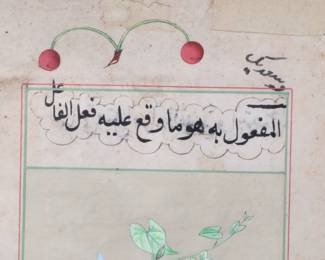 المفعول به هو ما وقع عليه فعل الفاعل